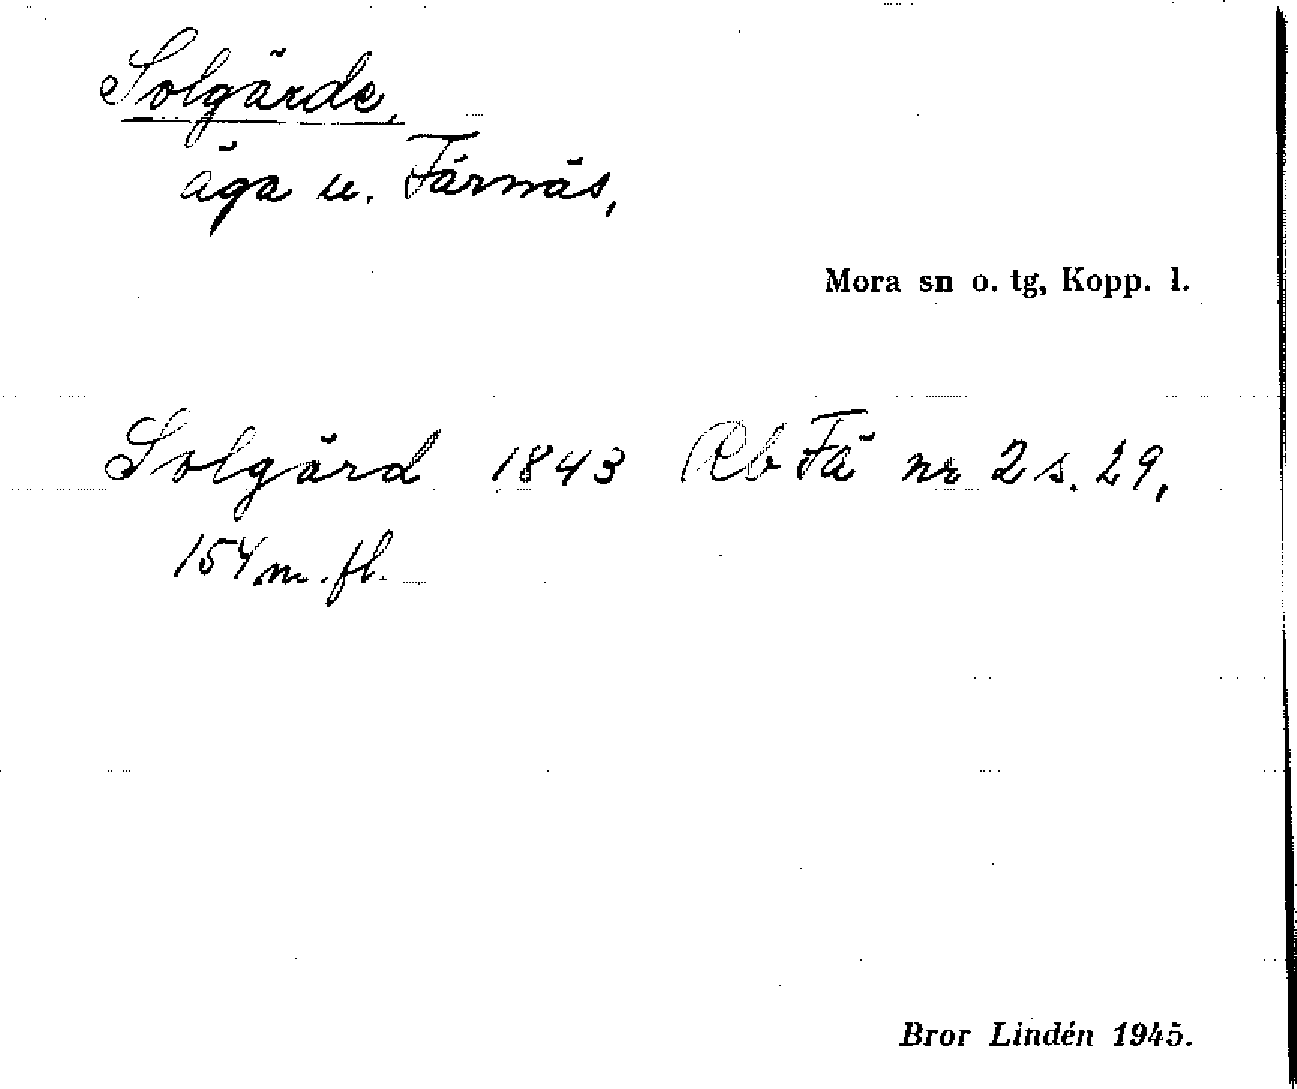 Solgärde,
äga u. Färnäs,
Mora sn o. tg, Kopp. l.
Solgärd 1843 Rb Fä nr 2 s. 29,
154 m. fl.
Bror Lindén 1945.